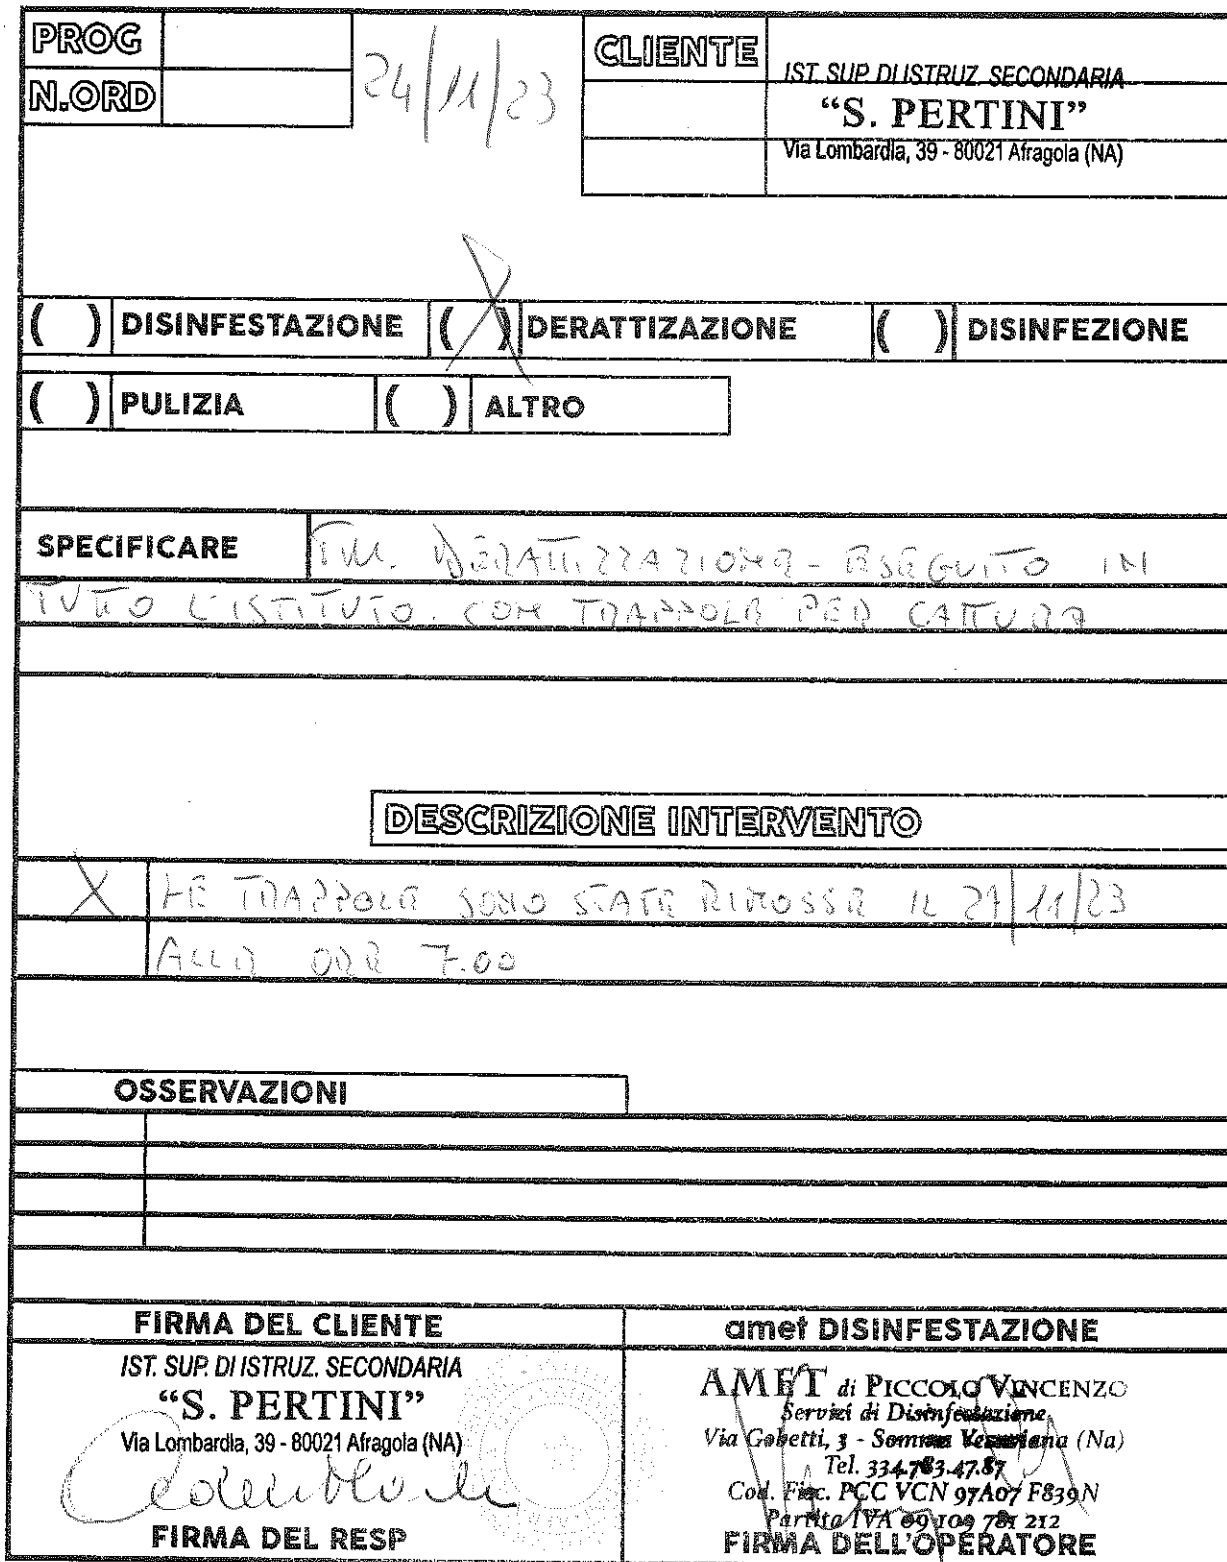 PROG
N.ORD
24/11/23
CLIENTE
IST. SUP. DI ISTRUZ. SECONDARIA
“S. PERTINI”
Via Lombardia, 39 - 80021 Afragola (NA)
( ) DISINFESTAZIONE (X) DERATTIZAZIONE ( ) DISINFEZIONE
( ) PULIZIA ( ) ALTRO
SPECIFICARE DERATTIZZAZIONE - ESEGUITO IN
TUTTO L'ISTITUTO. CON TRAPPOLE PER CATTURA
DESCRIZIONE INTERVENTO
X LE TRAPPOLE SONO STATE RIMOSSE IL 27/11/23
ALLE ORE 7.00
OSSERVAZIONI
FIRMA DEL CLIENTE
IST. SUP. DI ISTRUZ. SECONDARIA
“S. PERTINI”
Via Lombardia, 39 - 80021 Afragola (NA)
FIRMA DEL RESP
amet DISINFESTAZIONE
AMET di PICCOLO VINCENZO
Servizi di Disinfestazione
Via Gobetti, 3 - Somma Vesuviana (Na)
Tel. 334.783.47.87
Cod. Fisc. PCC VCN 97A07 F839N
Partita IVA 09 109 781 212
FIRMA DELL'OPERATORE